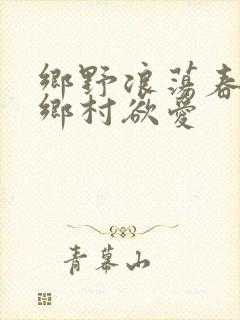 鄉野浪蕩春
鄉村欲愛
青幕山